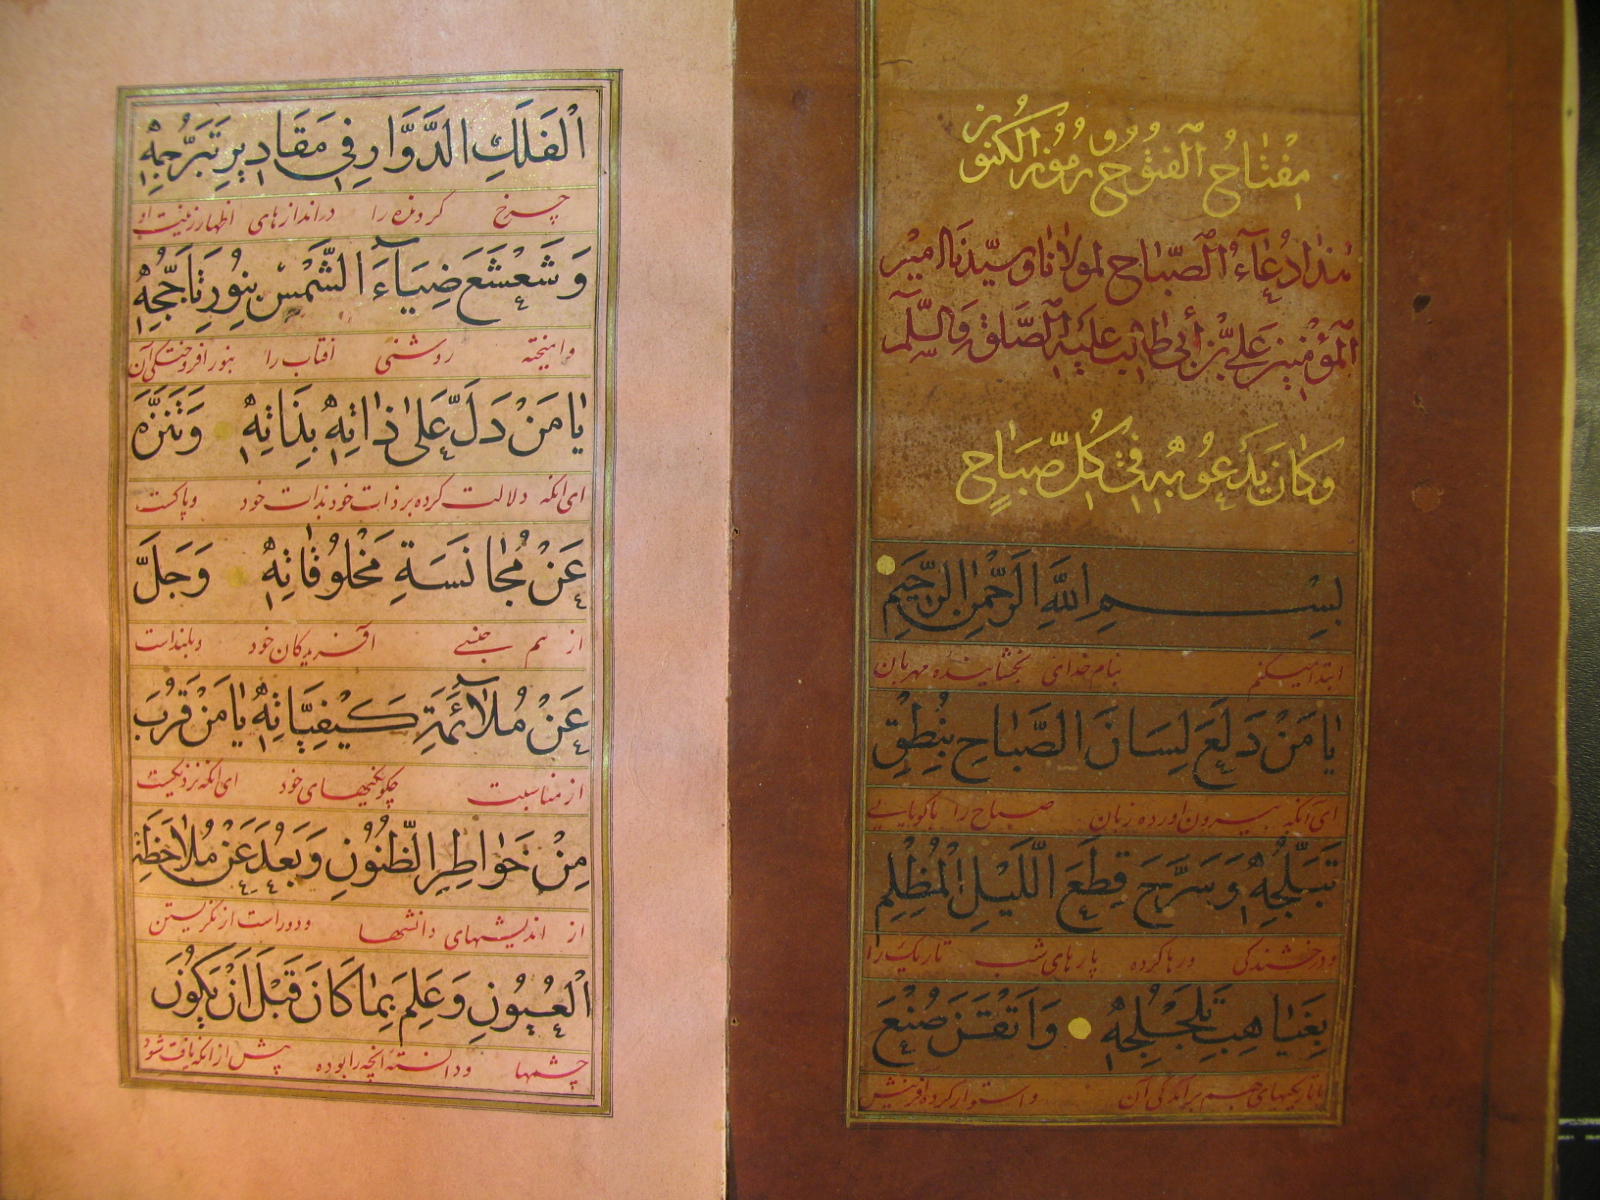 مِفْتَاحُ الْفُتُوُحِ وَ رُمُوزُ الْكُنُوزِ
هٰذَا دُعَاءُ الصَّبَاحِ لِمَوْلَانَا وَ سَيِّدِنَا اَمِيرِ
الْمُؤْمِنِينَ عَلِىِّ بْنِ أَبِى طَالِبٍ عَلَيْهِ الصَّلوةُ وَالسَّلَمُ
وَكَانَ يَدْعُو بِهِ فِى كُلِّ صَبَاحٍ
بِسْمِ اللَّهِ الرَّحْمٰنِ الرَّحِيمِ
ابتدا میکنم بنام خدای بخشاینده مهربان
يَا مَنْ دَلَعَ لِسَانَ الصَّبَاحِ بِنُطْقِ
ای انکه بیرون اورده زبان صباح را باگویایی
تَبَلُّجِهِ وَ سَرَّحَ قِطَعَ اللَّيْلِ الْمُظْلِمِ
و درخشندکی و رها کرده پارهای شب تاریک را
بِغَيَاهِبِ تَلَجْلُجِهِ وَاَتْقَنَ صُنْعَ
با تاریکیهای آن و استوار کرده افرینش
الْفَلَكِ الدَّوَّارِ فِى مَقَادِيرِ تَبَرُّجِهِ
چرخ کردنده را در اندازهای اظهار زینت او
وَ شَعْشَعَ ضِيَاءَ الشَّمْسِ بِنُورِ تَاَجُّجِهِ
وامیخته روشنی افتاب را بنور افروختکی آن
يَا مَنْ دَلَّ عَلٰى ذَاتِهِ بِذَاتِهِ وَتَنَزَّهَ
ای انکه دلالت کرده بر ذات خود بذات خود و پاکست
عَنْ مُجَانَسَةِ مَخْلُوقَاتِهِ وَجَلَّ
از هم جنسی آفریدکان خود و بلند است
عَنْ مُلَآئَمَةِ كَيْفِيَّاتِهِ يَا مَنْ قَرُبَ
از مناسبت چکونکیهای خود ای انکه نزدیکست
مِنْ خَوَاطِرِ الظُّنُونِ وَبَعُدَ عَنْ مُلَاحَظَةِ
از اندیشهای دانشها و دور است از نکریستن
الْعُيُونِ وَ عَلِمَ بِمَا كَانَ قَبْلَ اَنْ يَكُونَ
چشمها و دانسته انچه را بوده پیش از انکه یافت شود